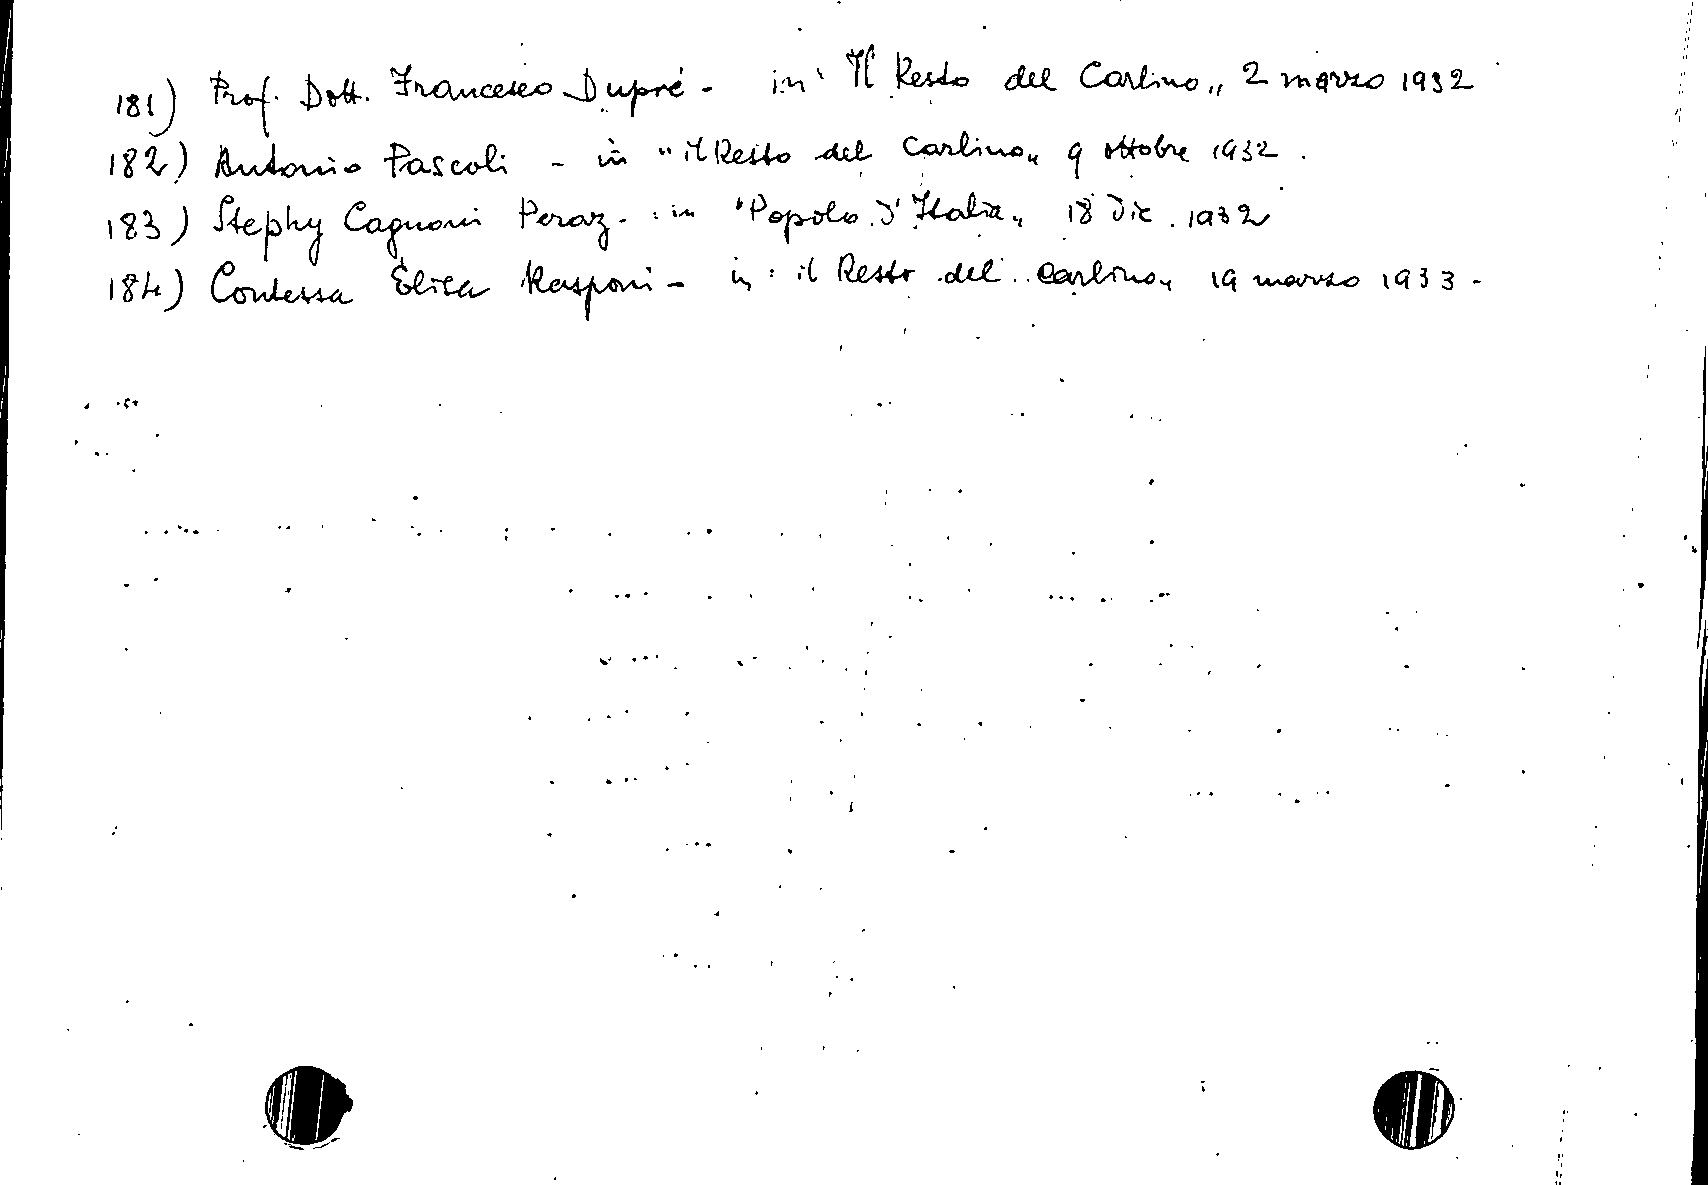 181) Prof. Dott. Francesco Dupré - in "Il Resto del Carlino„ 2 marzo 1932
182) Antonio Pascoli - in "il Resto del Carlino„ 9 ottobre 1932.
183) Stephy Cagnoni Peraz - in "Popolo d'Italia„ 18 Dic. 1932
184) Contessa Elisa Rasponi - in: il Resto del Carlino„ 19 marzo 1933 -